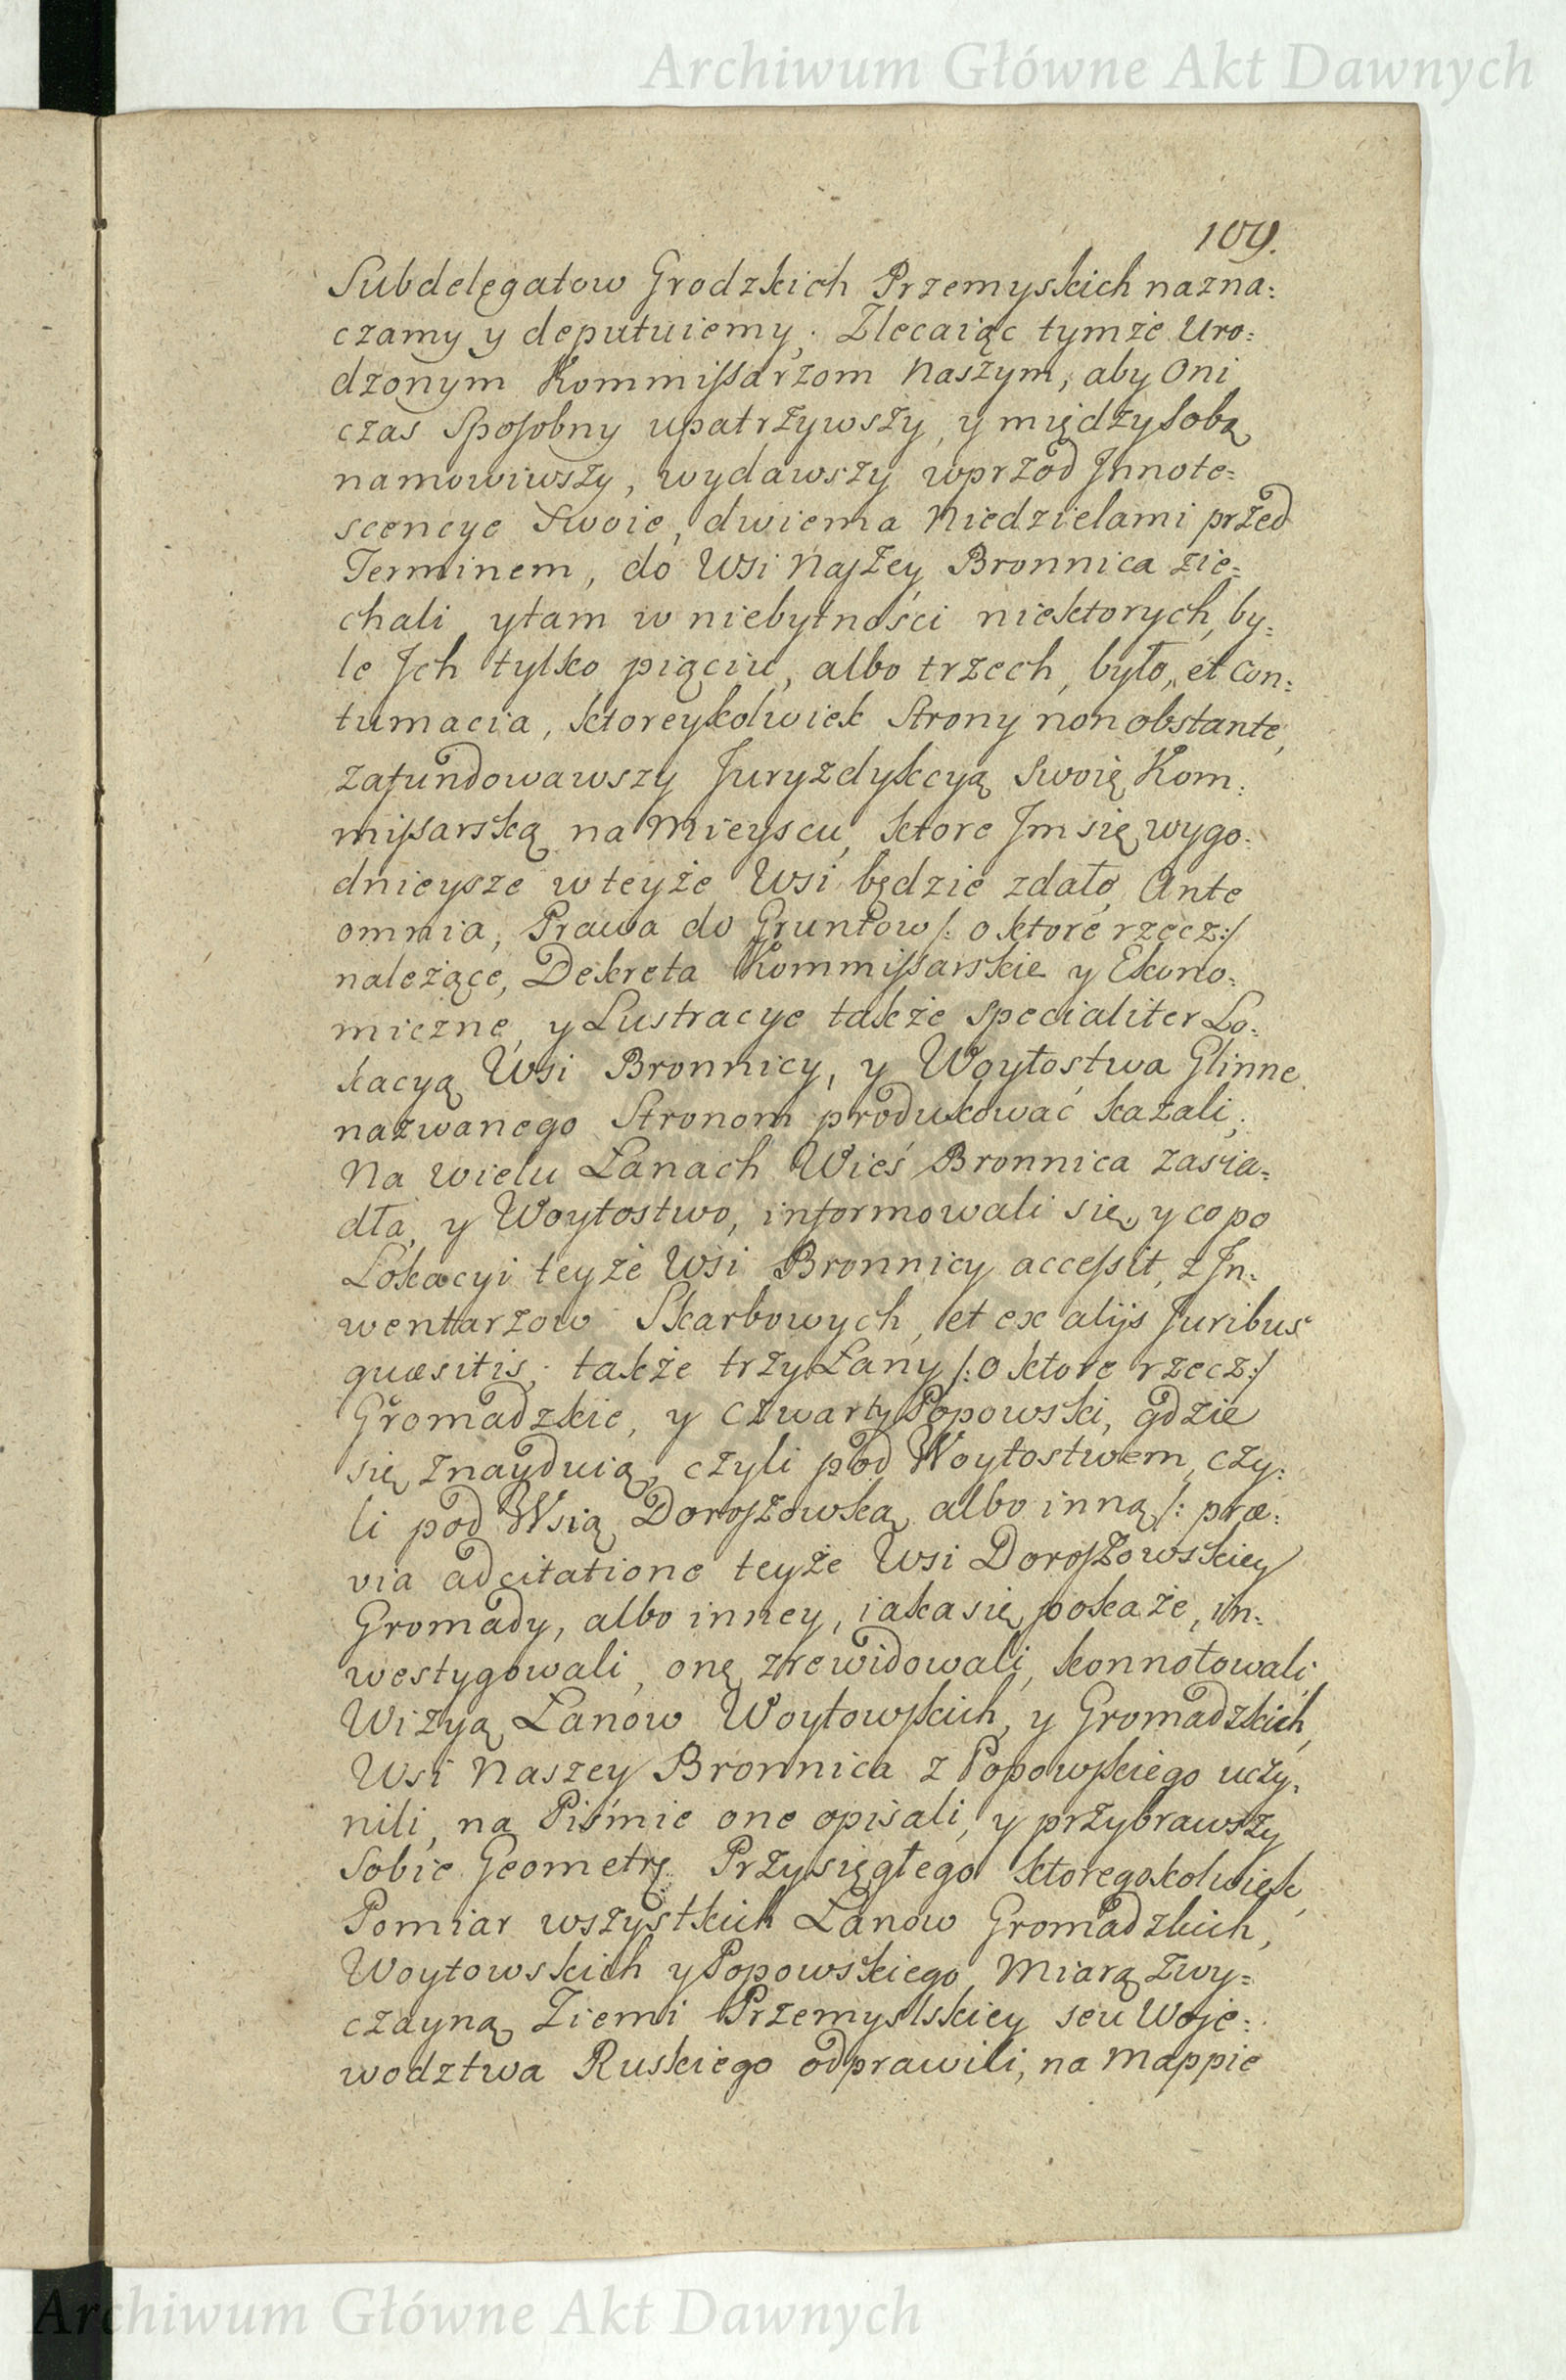 Archiwum Główne Akt Dawnych
109.
Subdelegatow Grodzkich Przemyskich nazna:
czamy y deputuiemy. Zlecaiąc tymże Uro:
dzonym Kommissarzom Naszym, aby Oni
czas sposobny upatrzywszy, y między sobą
namowiwszy, wydawszy wprzod Innote:
scencye swoie, dwiema Niedzielami przed
Terminem, do Wsi Naszey Bronnica zie:
chali y tam w niebytności niektorych, by:
le Ich tylko pięciu, albo trzech, było, et con:
tumacia, ktoreykolwiek strony non obstante,
zafundowawszy Juryzdykcyą swoię Kom:
missarską na Mieyscu, ktore Im się wygo:
dnieysze w teyże Wsi będzie zdało, Ante
omnia, Prawa do Gruntow /: o ktore rzecz :/
należące, Dekreta Kommissarskie y Ekono:
miczne, y Lustracye także specialiter Lo:
kacyą Wsi Bronnicy, y Woytostwa Glinne
nazwanego Stronom produkować kazali;
Na wielu Łanach Wieś Bronnica zasia:
dła, y Woytostwo, informowali się, y co po
Lokacyi teyże Wsi Bronnicy accessit, z In:
wentarzow Skarbowych, et ex alijs Juribus
quæsitis; także trzy Łany /: o ktore rzecz :/
Gromadzkie, y czwarty Popowski, gdzie
się znayduią, czyli pod Woytostwem, czy:
li pod Wsią Doroszowską albo inną /: præ:
via adcitatione teyże Wsi Doroszowskiey
Gromady, albo inney, iaka się pokaże, in:
westygowali, onę zrewidowali, konnotowali,
Wizyą Łanow Woytowskich, y Gromadzkich,
Wsi Naszey Bronnica z Popowskiego uczy:
nili, na Piśmie one opisali, y przybrawszy
sobie Geometrę Przysięgłego ktoregokolwiek,
Pomiar wszystkich Łanow Gromadzkich,
Woytowskich y Popowskiego Miarą zwy:
czayną Ziemi Przemyslskiey seu Woje:
wodztwa Ruskiego odprawili, na Mappie
Archiwum Główne Akt Dawnych